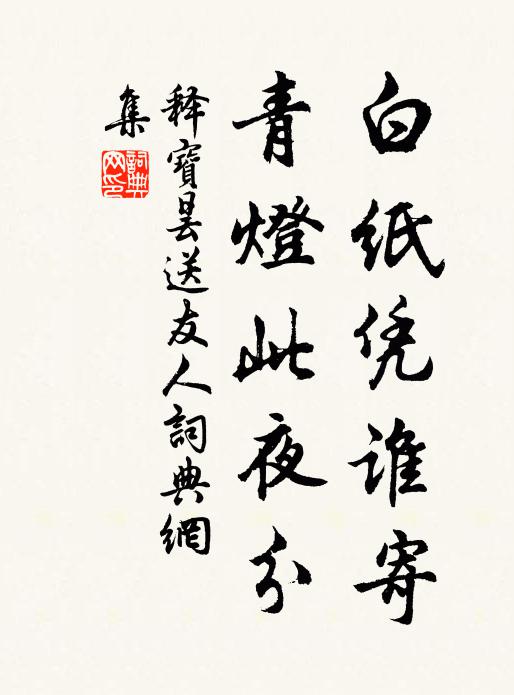 白纸凭谁寄
青燈此夜分
释寶曇送友人詞典網
集
詞典
网印